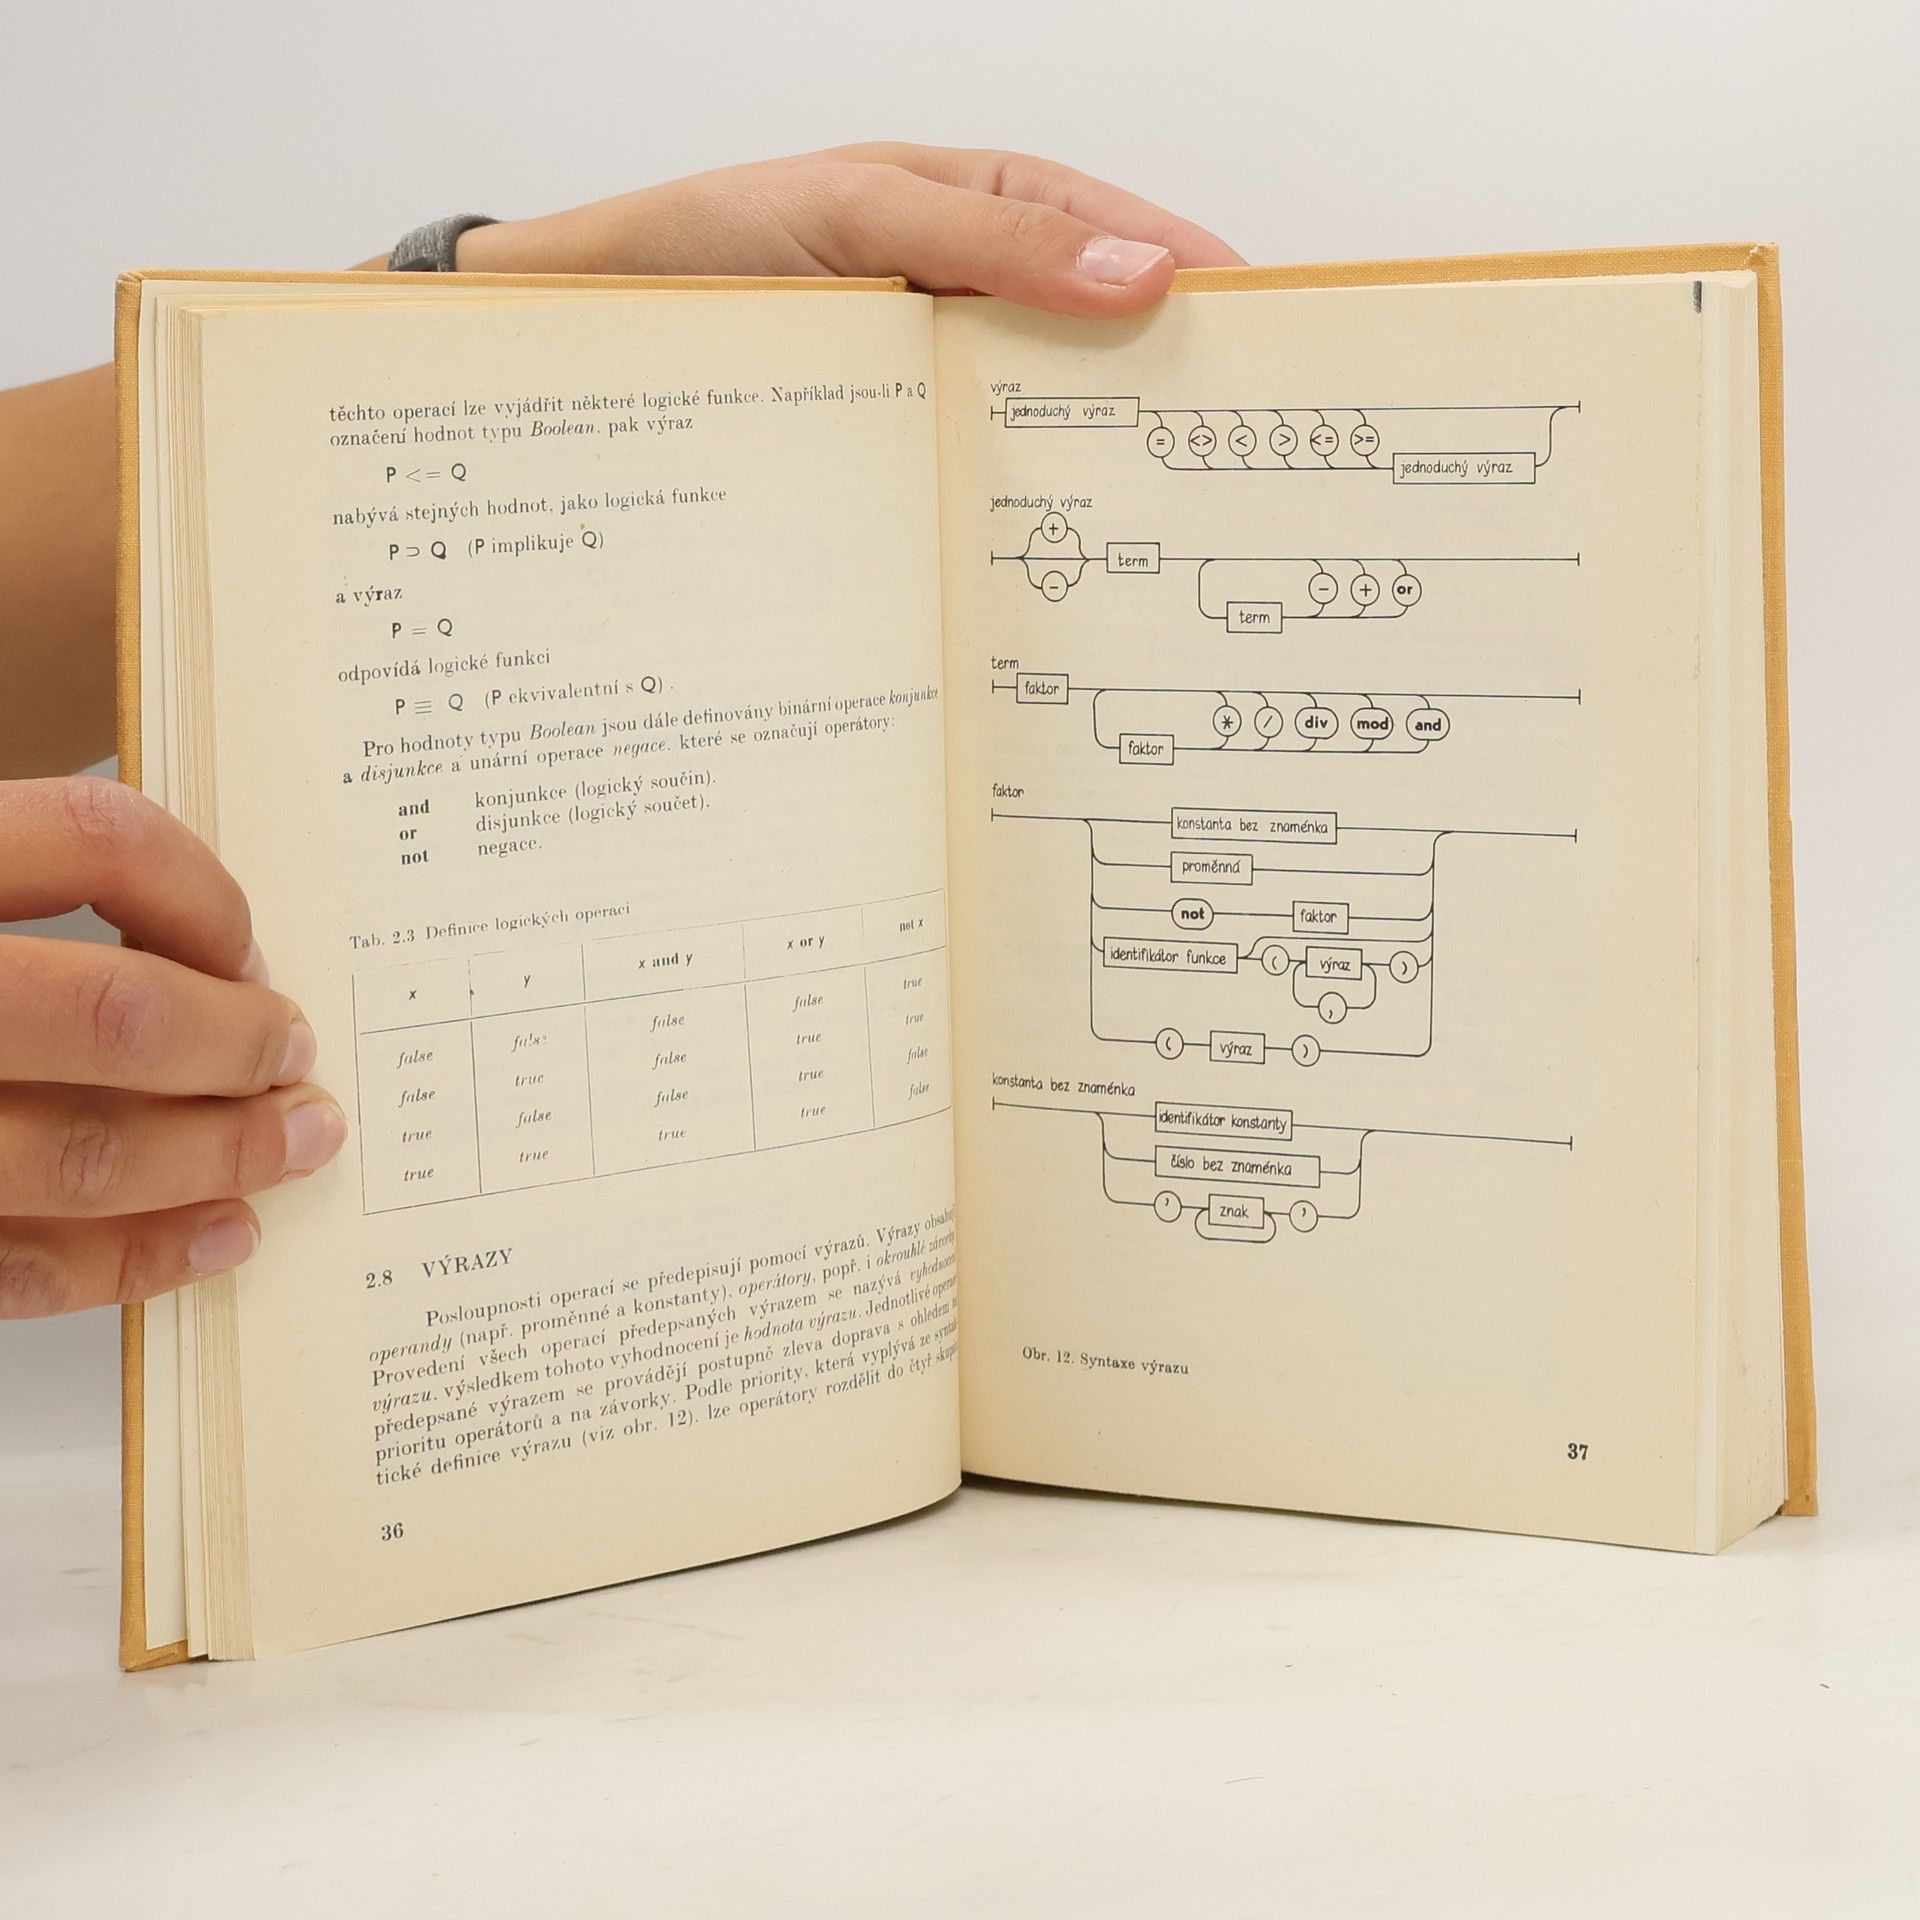 těchto operací lze vyjádřit některé logické funkce. Například jsou-li P a Q
označení hodnot typu Boolean. pak výraz
P <= Q
nabývá stejných hodnot, jako logická funkce
P ⊃ Q (P implikuje Q)
a výraz
P = Q
odpovídá logické funkci
P ≡ Q (P ekvivalentní s Q).
Pro hodnoty typu Boolean jsou dále definovány binární operace konjunkce
a disjunkce a unární operace negace. které se označují operátory:
and konjunkce (logický součin).
or disjunkce (logický součet).
not negace.
Tab. 2.3 Definice logických operací
x y x and y x or y not x
false false false false true
false true false true true
true false false true false
true true true true false
2.8 VÝRAZY
Posloupnosti operací se předepisují pomocí výrazů. Výrazy
operandy (např. proměnné a konstanty). operátory, popř. i okrouhlé závorky
Provedení všech operací předepsaných výrazem se nazývá
výrazu. výsledkem tohoto vyhodnocení je hodnota výrazu. Jednotlivé
předepsané výrazem se provádějí postupně zleva doprava s ohledem
prioritu operátorů a na závorky. Podle priority, která vyplývá ze
tické definice výrazu (viz obr. 12). lze operátory rozdělit do čtyř
36
výraz
jednoduchý výraz
= <> < > <= >=
jednoduchý výraz
jednoduchý výraz
+
term
-
- + or
term
term
faktor
* / div mod and
faktor
faktor
konstanta bez znaménka
proměnná
not faktor
identifikátor funkce ( výraz )
,
( výraz )
konstanta bez znaménka
identifikátor konstanty
číslo bez znaménka
' znak '
Obr. 12. Syntaxe výrazu
37